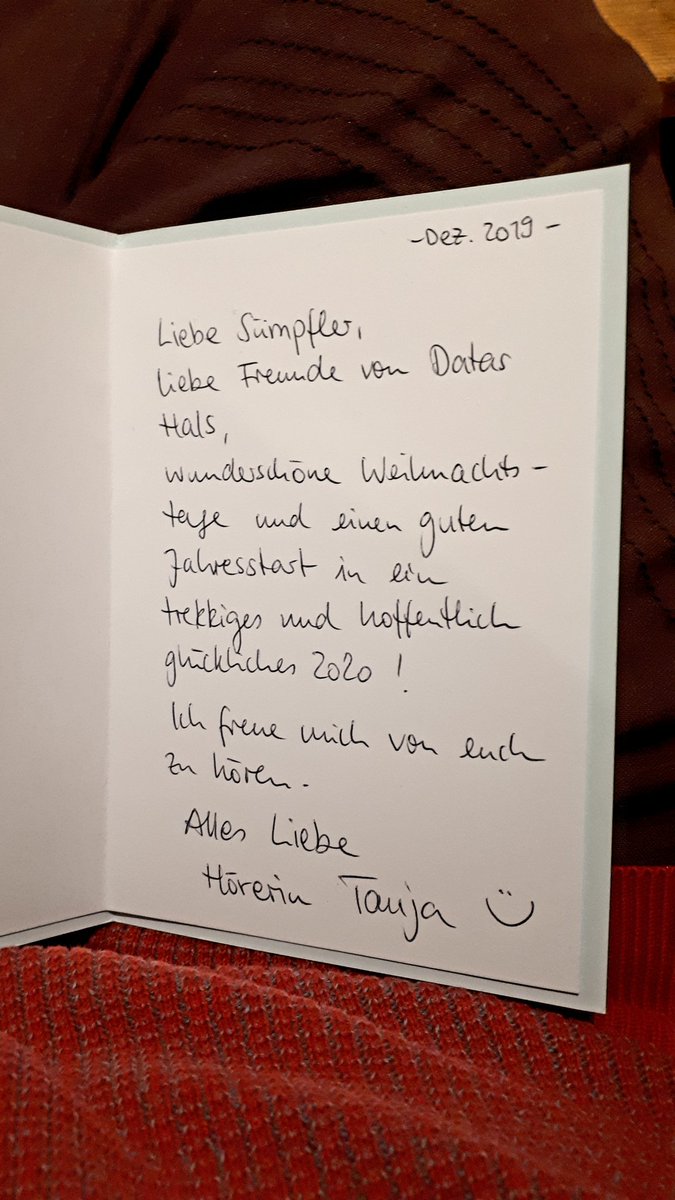 -Dez. 2019 -
Liebe Sümpfler,
liebe Freunde von Datas
Hals,
wunderschöne Weihnachts-
tage und einen guten
Jahresstart in ein
trekkiges und hoffentlich
glückliches 2020 !
Ich freue mich von euch
zu hören.
Alles Liebe
Hörerin Tanja